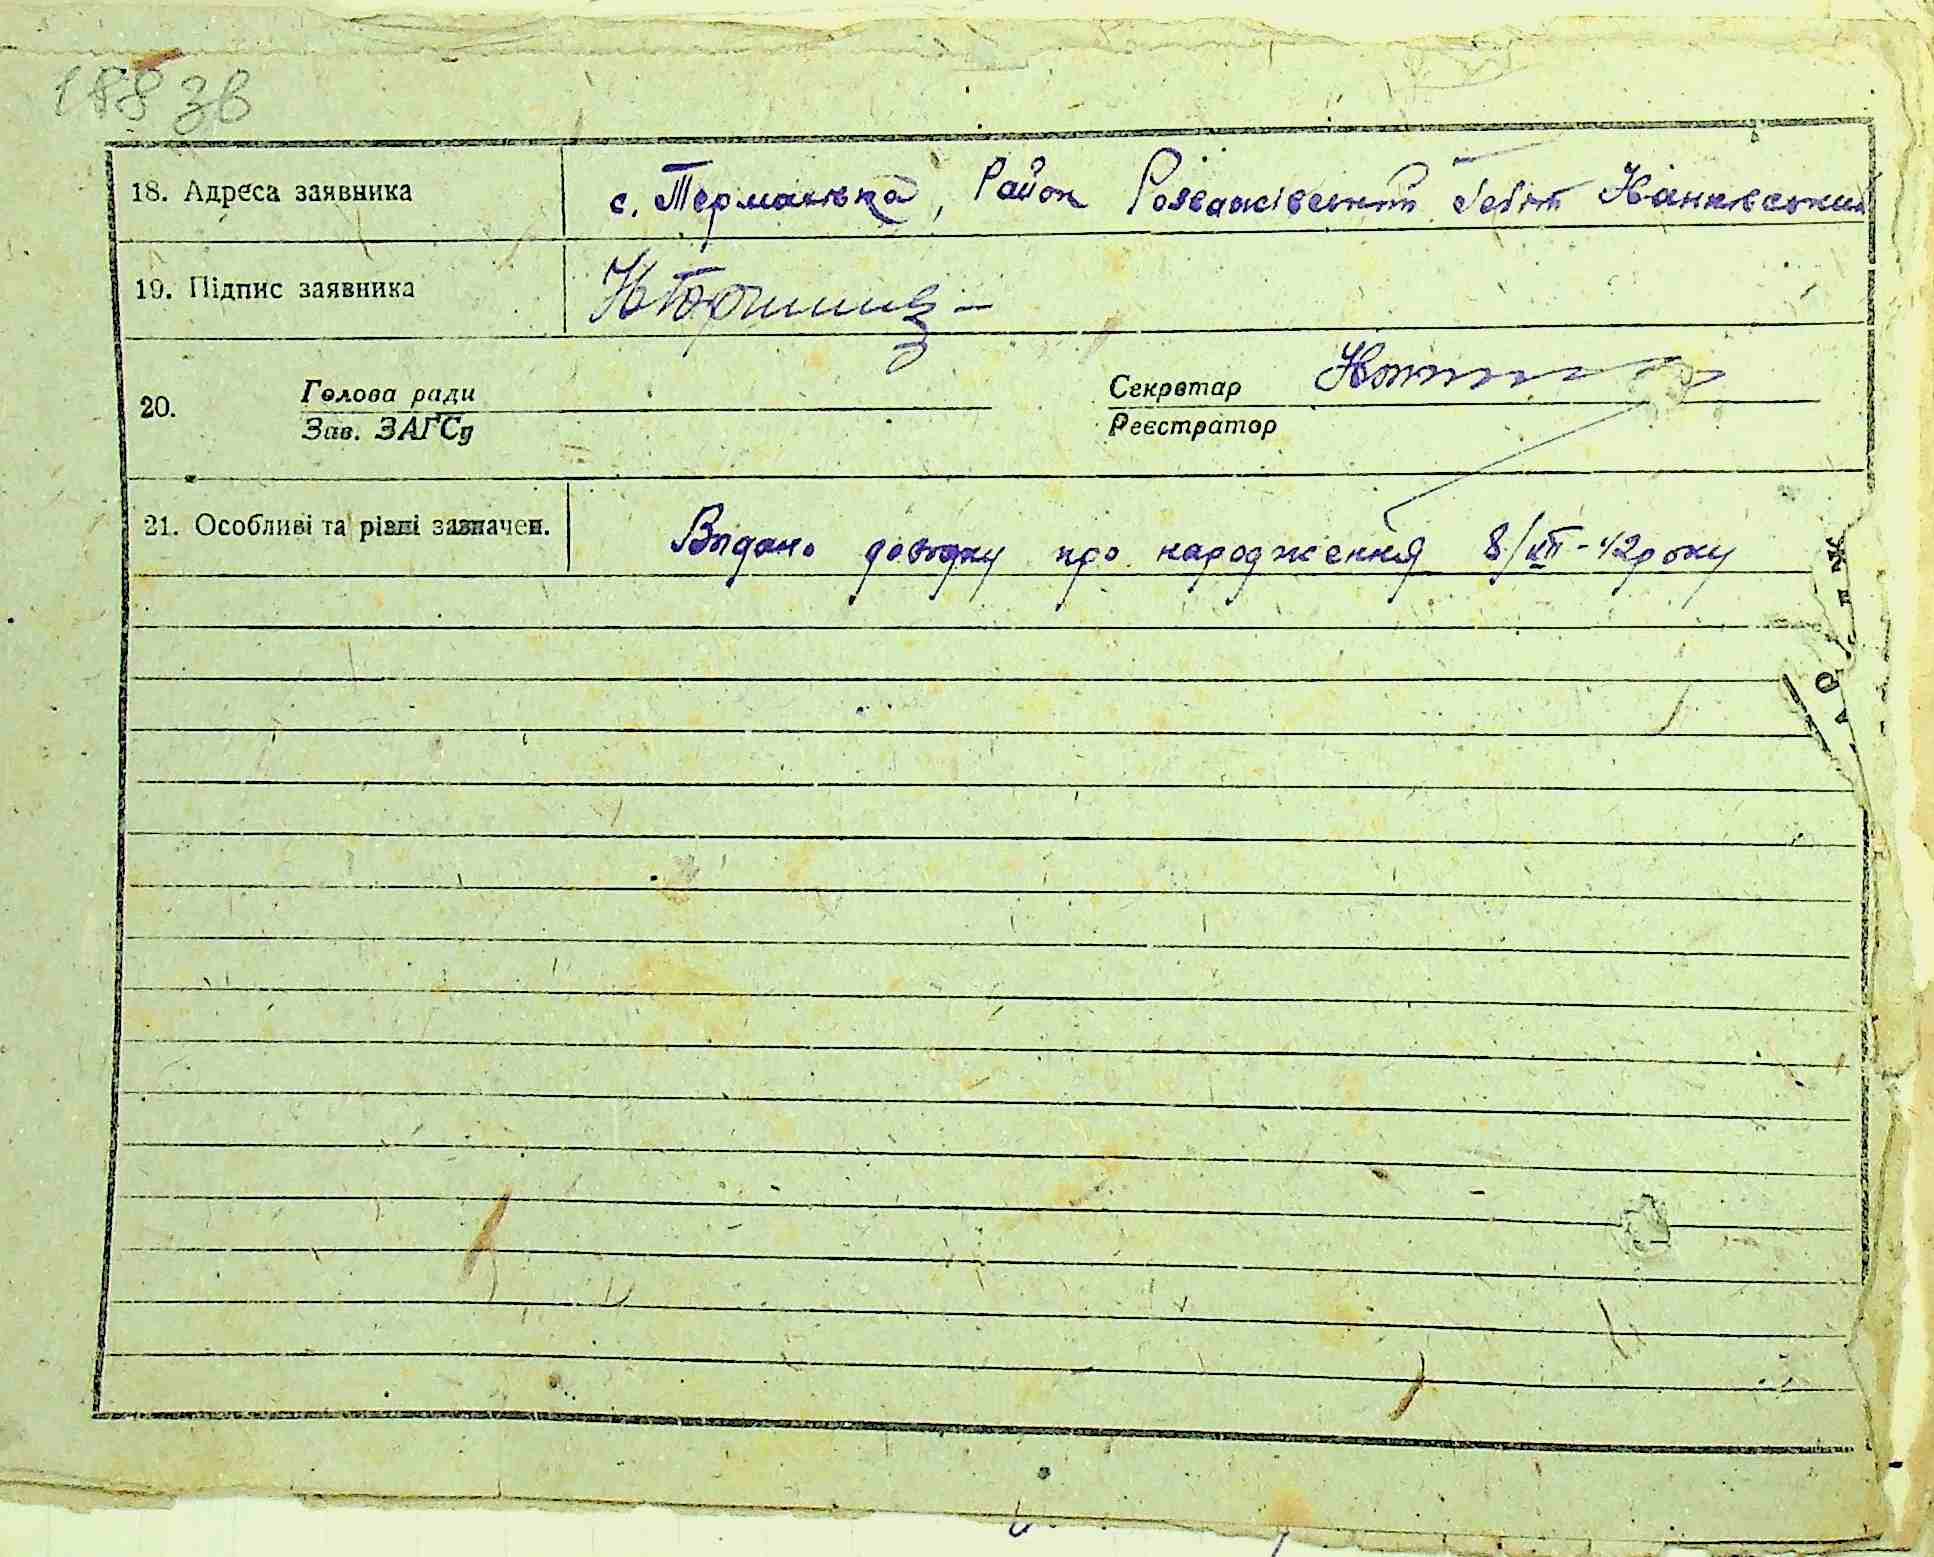 188 зв
18. Адреса заявника с. Термахівка, Район Розважівський Гебіт Іванківський
19. Підпис заявника
20. Голова ради Секретар
Зав. ЗАГСу Реєстратор
21. Особливі та різні зазначен. Видано довідку про народження 8/VII-42 року